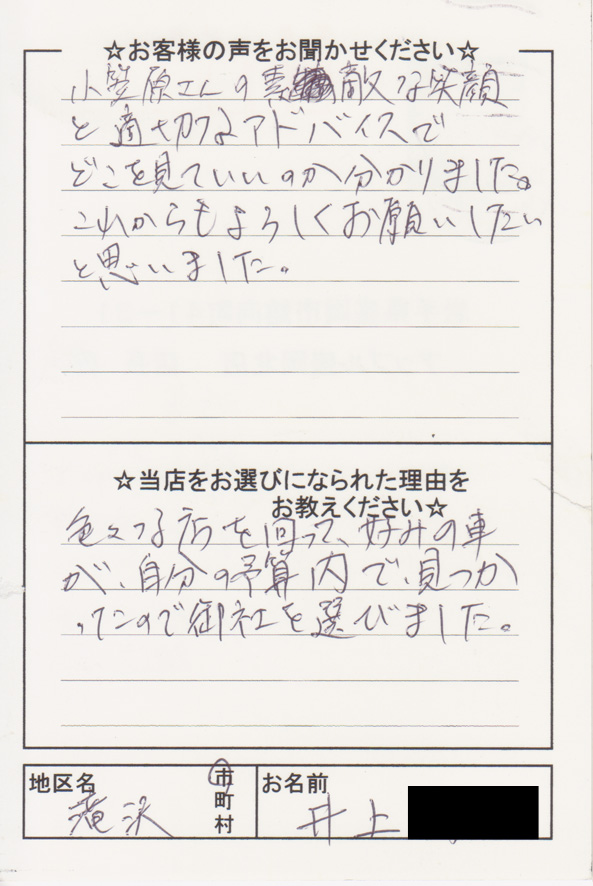 ☆お客様の声をお聞かせください☆
小笠原さんの素敵な笑顔
と適切なアドバイスで
どこを見ていいのか分かりました。
これからもよろしくお願いしたい
と思いました。
☆当店をお選びになられた理由を
お教えください☆
色々な店を回って、好みの車
が、自分の予算内で、見つか
ったので御社を選びました。
地区名
滝沢
市
町
村
お名前
井上